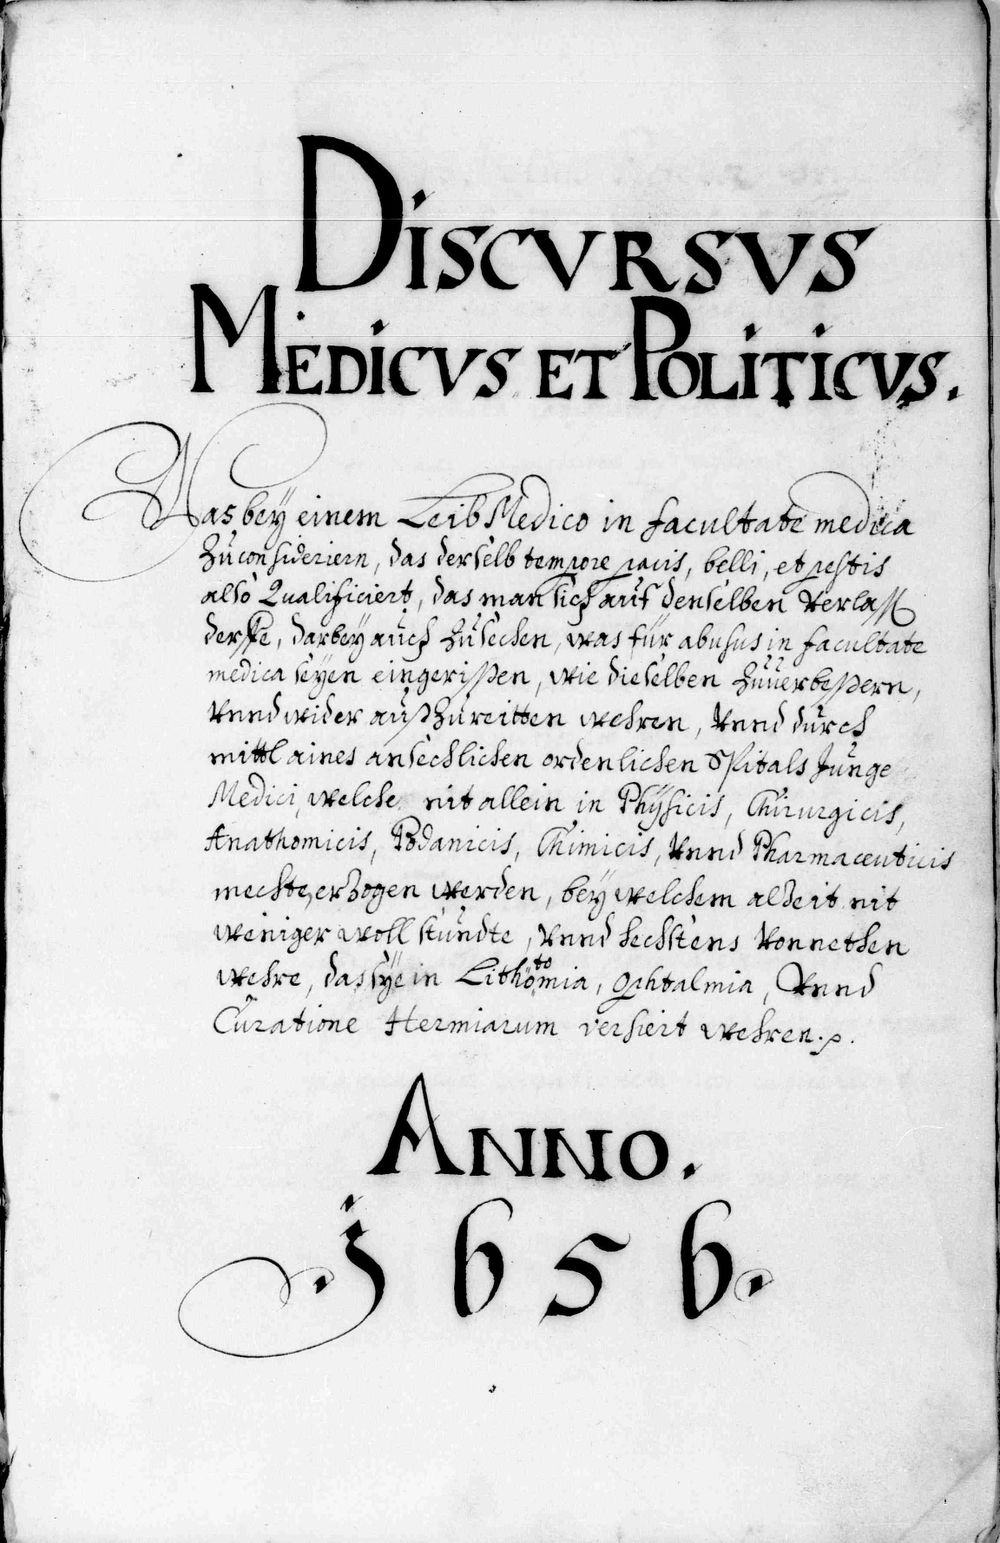 DISCVRSVS
MEDICVS ET POLITICVS.
Was bey einem Leib Medico in facultate medica
Zuconsideriern, das derselb tempore pacis, belli, et pestis
also Qualificiert, das man sich auf denselben verlassen
derffe, darbey auch Zusechen, was für abusus in facultate
medica seyen eingerissen, wie dieselben Zuuerbessern,
vnnd wider außZureitten wehren, vnnd durch
mittl aines ansechlichen ordenlichen Spitals Junge
Medici, welche nit allein in Physicis, Chirurgicis,
Anathomicis, Bodanicis, Chimicis, vnnd Pharmaceuticis
mechten erZogen werden, bey welchem alZeit nit
weniger woll stundte, vnnd hechstens vonnethen
wehre, das sye in Lithotomia, Ophtalmia, vnnd
Curatione Herniarum versiert wehren.
ANNO.
1656.